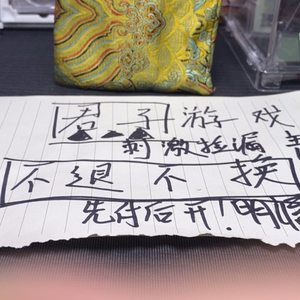 君子游戏
刺激捡漏
不退不换
先付后开！明